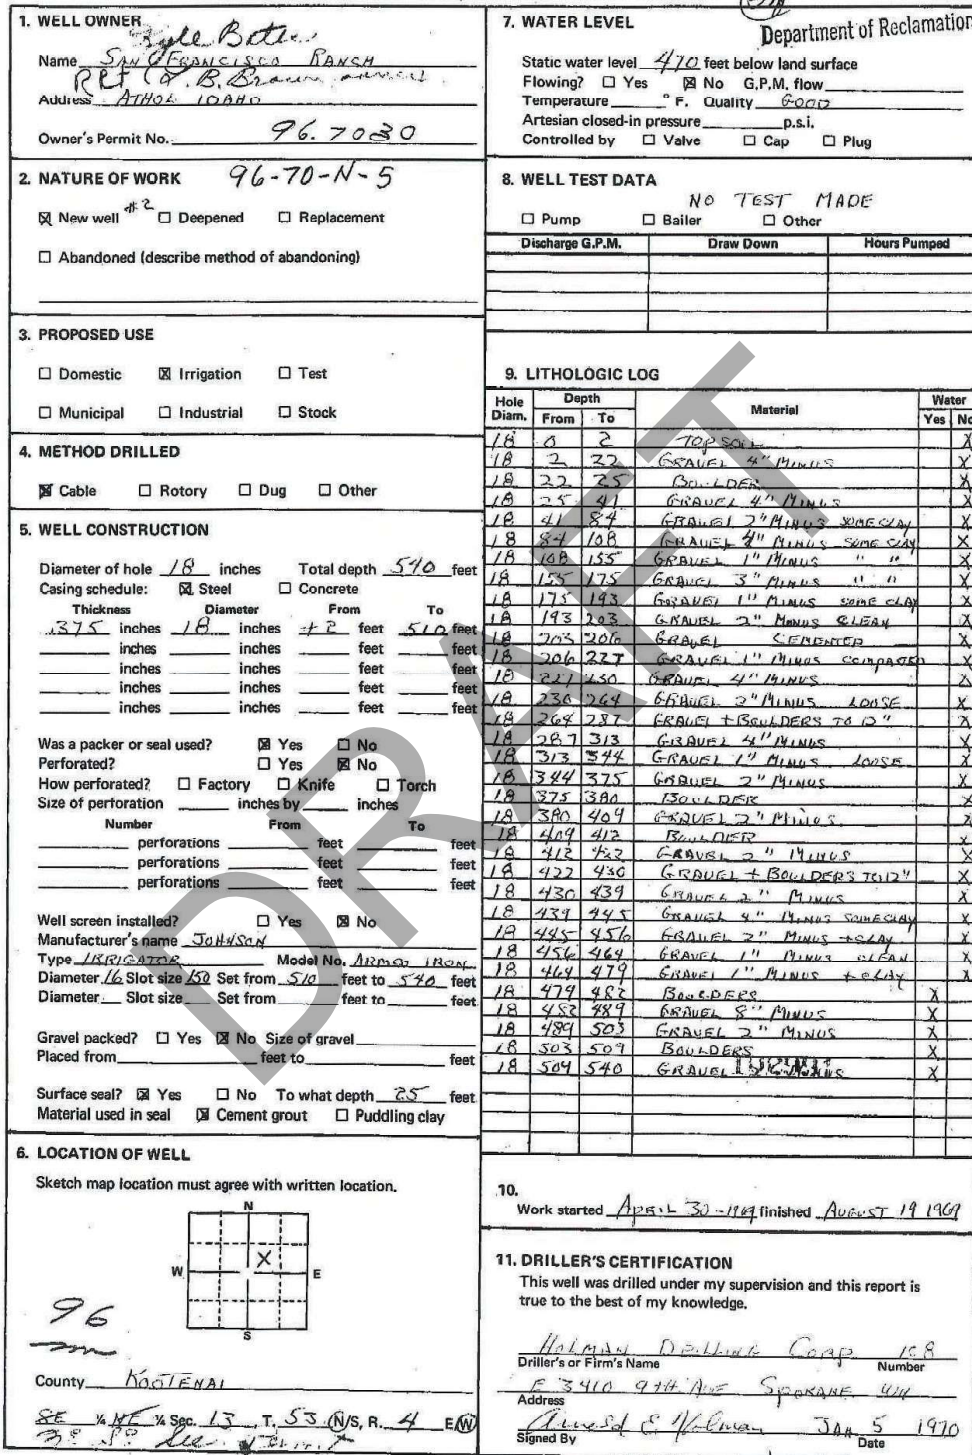 Department of Reclamation
1. WELL OWNER
Name SAN FRANCISCO RANCH
Address ATHOL IDAHO
Owner's Permit No. 96.7030
2. NATURE OF WORK 96-70-N-5
☒ New well #2 ☐ Deepened ☐ Replacement
☐ Abandoned (describe method of abandoning)
3. PROPOSED USE
☐ Domestic ☒ Irrigation ☐ Test
☐ Municipal ☐ Industrial ☐ Stock
4. METHOD DRILLED
☒ Cable ☐ Rotory ☐ Dug ☐ Other
5. WELL CONSTRUCTION
Diameter of hole 18 inches Total depth 540 feet
Casing schedule: ☒ Steel ☐ Concrete
Thickness Diameter From To
.375 inches 18 inches +2 feet 510 feet
inches inches feet feet
inches inches feet feet
inches inches feet feet
inches inches feet feet
Was a packer or seal used? ☒ Yes ☐ No
Perforated? ☐ Yes ☒ No
How perforated? ☐ Factory ☐ Knife ☐ Torch
Size of perforation inches by inches
Number From To
perforations feet feet
perforations feet feet
perforations feet feet
Well screen installed? ☐ Yes ☒ No
Manufacturer's name JOHNSON
Type IRRIGATOR Model No. ARMCO IRON
Diameter 16 Slot size 150 Set from 510 feet to 540 feet
Diameter Slot size Set from feet to feet
Gravel packed? ☐ Yes ☒ No Size of gravel
Placed from feet to feet
Surface seal? ☒ Yes ☐ No To what depth 25 feet
Material used in seal ☒ Cement grout ☐ Puddling clay
6. LOCATION OF WELL
Sketch map location must agree with written location.
N
W X E
S
96
County KOOTENAI
SE ¼ NE ¼ Sec. 13 T. 53 N/S, R. 4 E/W
7. WATER LEVEL
Static water level 470 feet below land surface
Flowing? ☐ Yes ☒ No G.P.M. flow
Temperature ° F. Quality GOOD
Artesian closed-in pressure p.s.i.
Controlled by ☐ Valve ☐ Cap ☐ Plug
8. WELL TEST DATA
NO TEST MADE
☐ Pump ☐ Bailer ☐ Other
Discharge G.P.M. Draw Down Hours Pumped
9. LITHOLOGIC LOG
Hole Diam. Depth From To Material Water Yes No
18 0 2 TOP SOIL X
18 2 22 GRAVEL 4" MINUS X
18 22 25 BOULDER X
18 25 41 GRAVEL 4" MINUS X
18 41 84 GRAVEL 2" MINUS SOME CLAY X
18 84 108 GRAVEL 4" MINUS SOME CLAY X
18 108 155 GRAVEL 1" MINUS " " X
18 155 175 GRAVEL 3" MINUS " " X
18 175 193 GRAVEL 1" MINUS SOME CLAY X
18 193 203 GRAVEL 2" MINUS CLEAN X
18 203 206 GRAVEL CEMENTED X
18 206 227 GRAVEL 1" MINUS COMPACTED X
18 230 GRAVEL 4" MINUS X
18 230 264 GRAVEL 2" MINUS LOOSE X
18 264 287 GRAVEL + BOULDERS TO 12" X
18 287 313 GRAVEL 4" MINUS X
18 313 344 GRAVEL 1" MINUS LOOSE X
18 344 375 GRAVEL 2" MINUS X
18 375 380 BOULDER X
18 380 409 GRAVEL 2" MINUS X
18 409 412 BOULDER X
18 412 422 GRAVEL 2" MINUS X
18 422 430 GRAVEL + BOULDERS TO 12" X
18 430 439 GRAVEL 2" MINUS X
18 439 445 GRAVEL 4" MINUS SOME CLAY X
18 445 456 GRAVEL 2" MINUS + CLAY X
18 456 464 GRAVEL 1" MINUS CLEAN X
18 464 479 GRAVEL 1" MINUS + CLAY X
18 479 482 BOULDERS X
18 482 489 GRAVEL 8" MINUS X
18 489 503 GRAVEL 2" MINUS X
18 503 509 BOULDERS X
18 509 540 GRAVEL X
10.
Work started APRIL 30-1969 finished AUGUST 19 1969
11. DRILLER'S CERTIFICATION
This well was drilled under my supervision and this report is
true to the best of my knowledge.
HOLMAN DRILLING CORP 108
Driller's or Firm's Name Number
E 3410 9TH AVE SPOKANE WN
Address
Arnold E Holman JAN 5 1970
Signed By Date
DRAFT